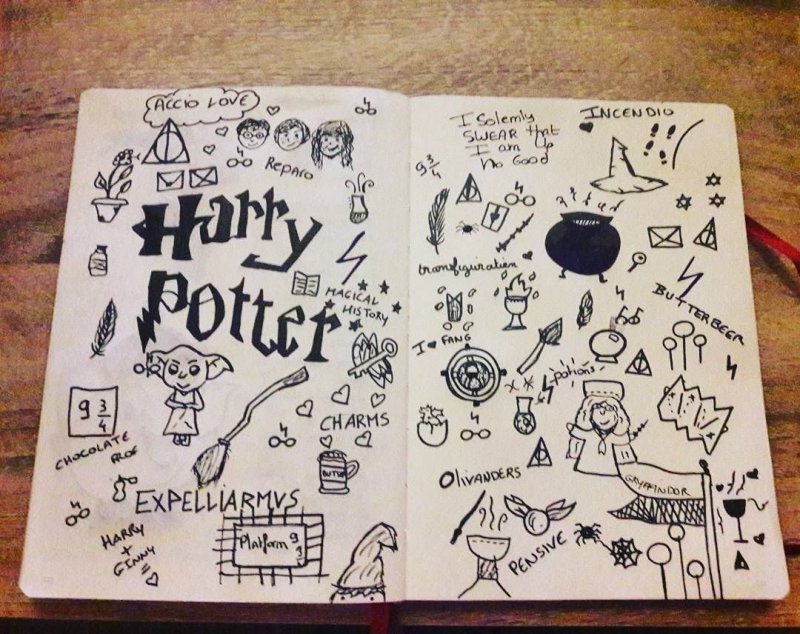 ACCIO LOVE
REPARO
Harry
Potter
MAGICAL
HISTORY
9 3/4
CHOCOLATE
FROG
CHARMS
BUTTER
EXPELLIARMUS
HARRY
+
GINNY
Platform 9
3
I Solemly
SWEAR that
I am Up
No Good
INCENDIO
9 3/4
transfiguration
BUTTERBEER
I ♥ FANG
Potions
OLIVANDERS
GRYFFINDOR
PENSIVE